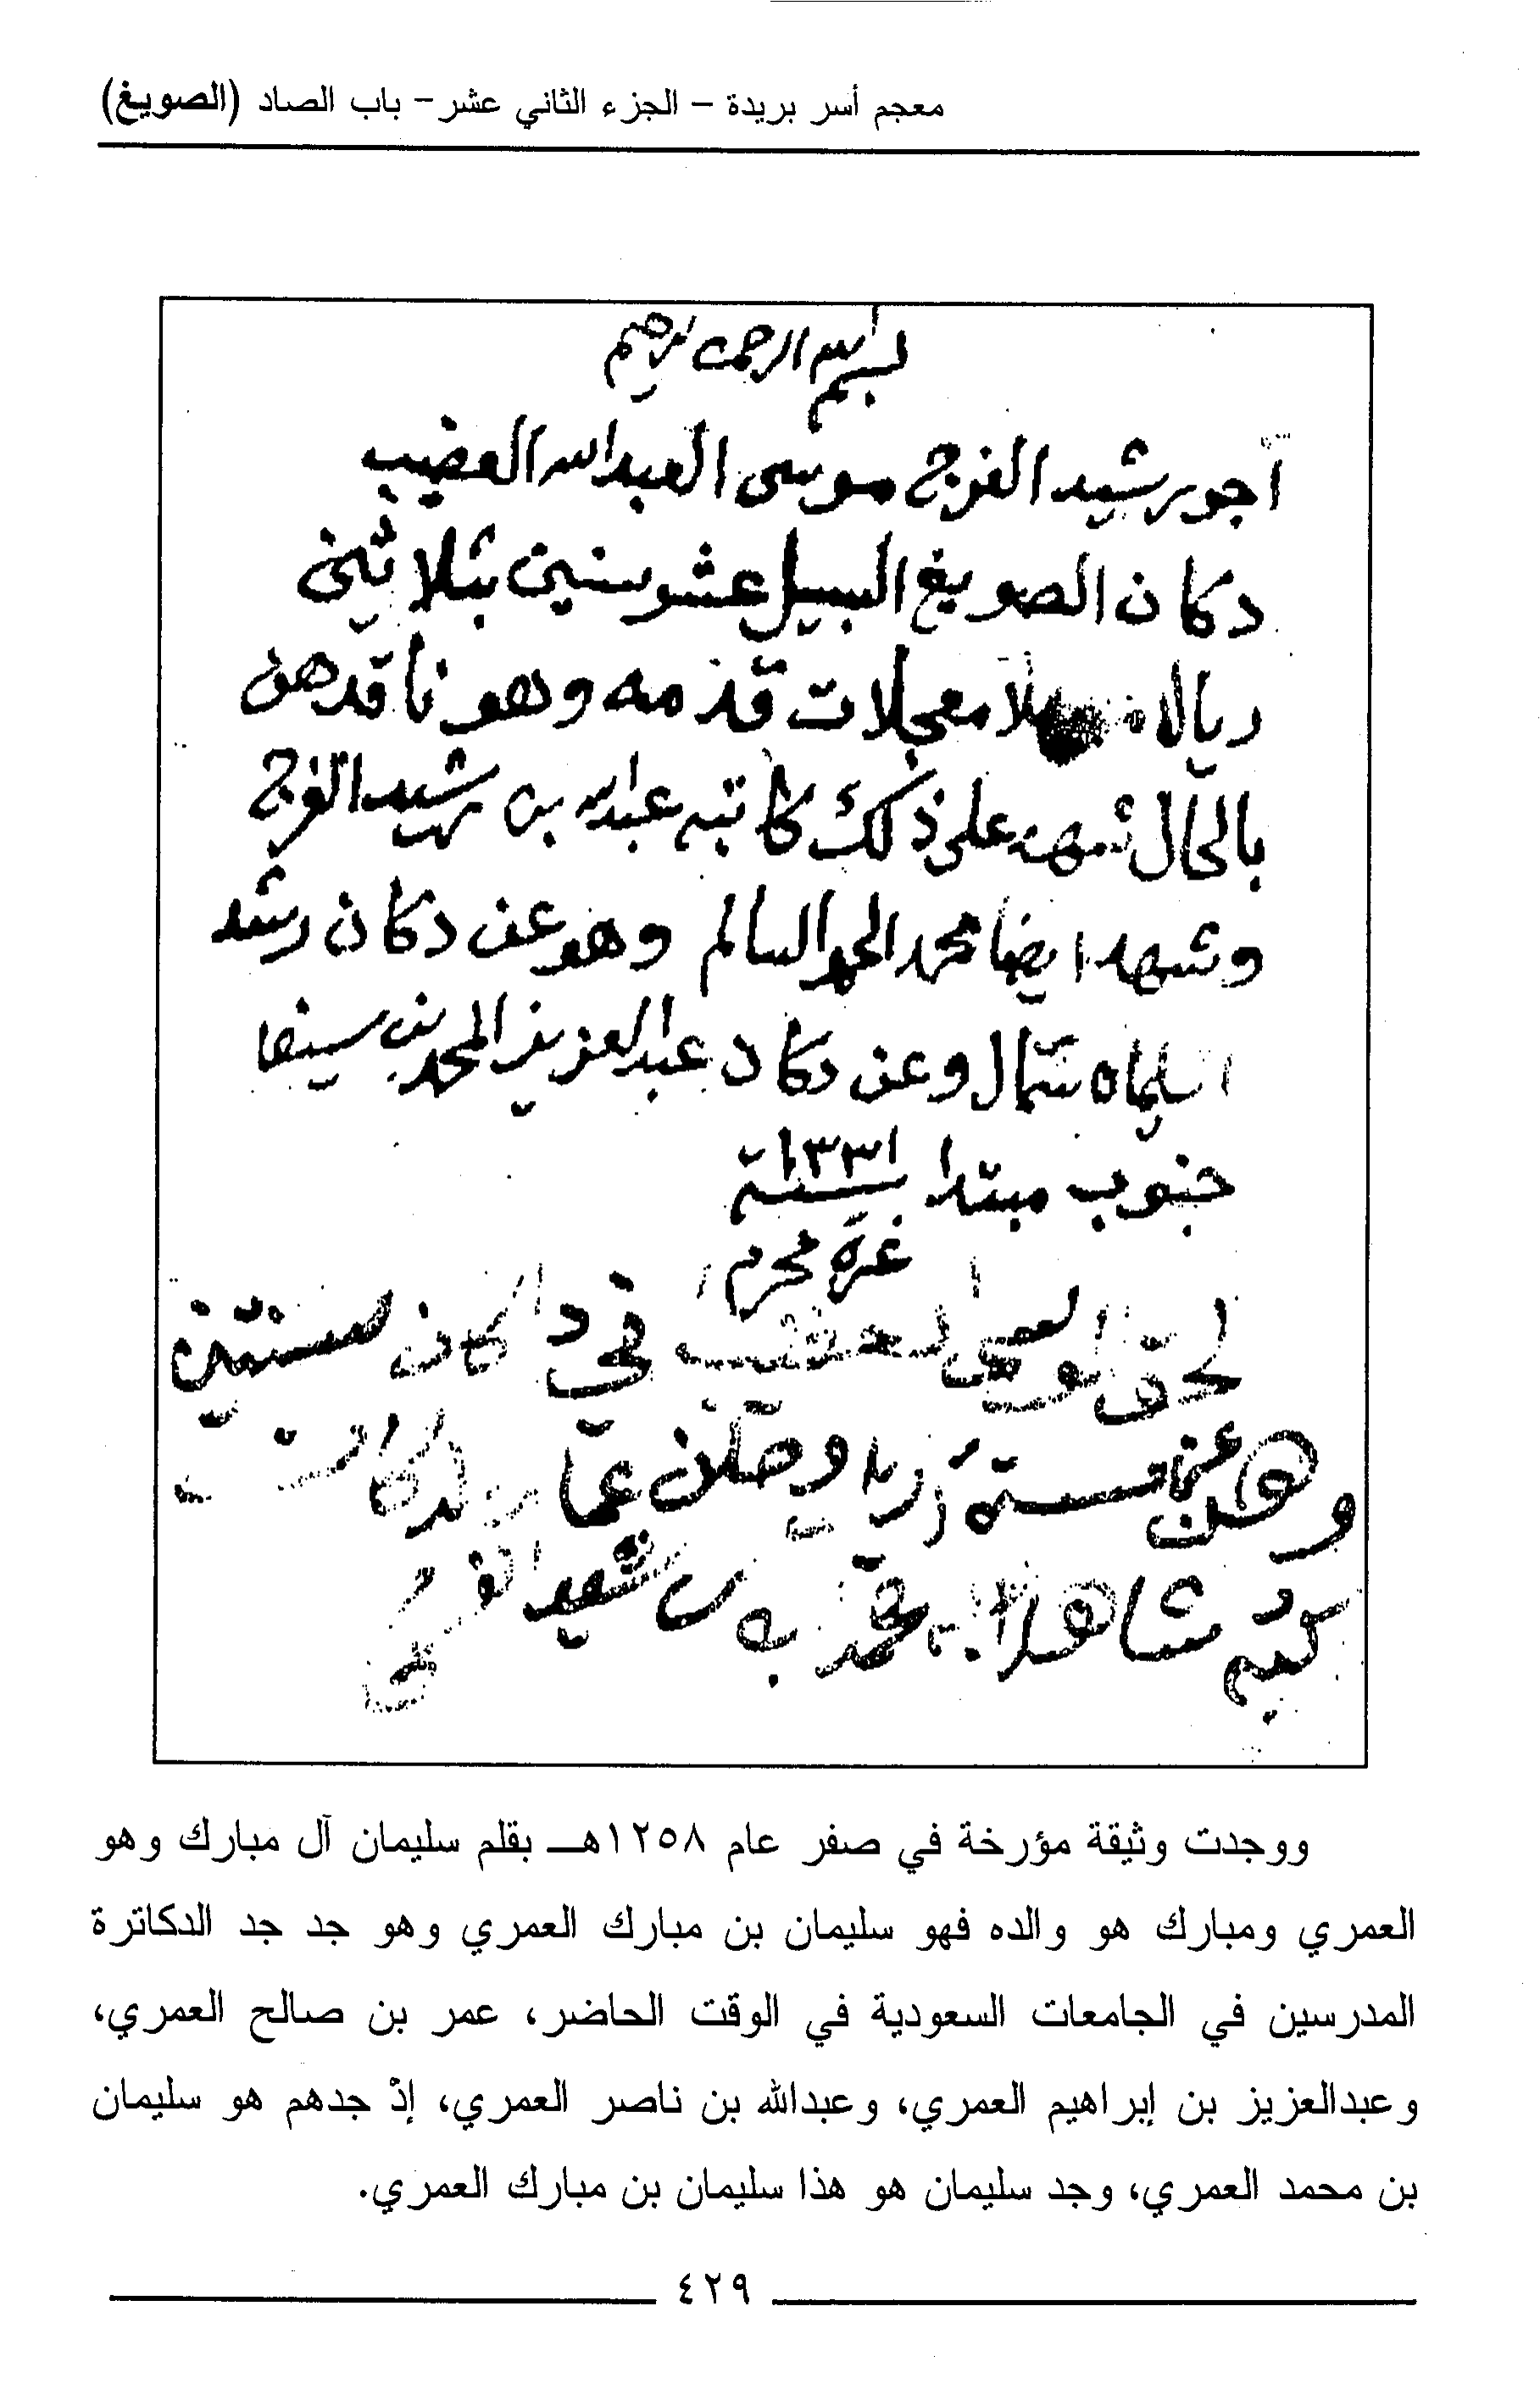 معجم أسر بريدة – الجزء الثاني عشر– باب الصاد (الصويغ)
بسم الله الرحمن الرحيم
آجر رشيد الفرج موسى العبدالله العضيب
دكان الصويغ السبيل عشر سنين بثلاثين
ريال معجلات قدمه وهو ناقدهن
بالحال شهد على ذلك كاتبه عبدالله بن رشيد الفرج
وشهد ايضا محمد الحمد السالم وهو عن دكان رشد
السليمان شمال وعن دكان عبدالعزيز المحمد بن سيف
جنوب مبتدا سنة ١٣٣١
غرة محرم
لحق في دكان سنتين
وهن عن ستة اريل وصلن
كتبه شاهدا به محمد بن رشيد الفرج
ووجدت وثيقة مؤرخة في صفر عام ١٢٥٨هـ بقلم سليمان آل مبارك وهو
العمري ومبارك هو والده فهو سليمان بن مبارك العمري وهو جد جد الدكاترة
المدرسين في الجامعات السعودية في الوقت الحاضر، عمر بن صالح العمري،
وعبدالعزيز بن إبراهيم العمري، وعبدالله بن ناصر العمري، إذْ جدهم هو سليمان
بن محمد العمري، وجد سليمان هو هذا سليمان بن مبارك العمري.
٤٢٩